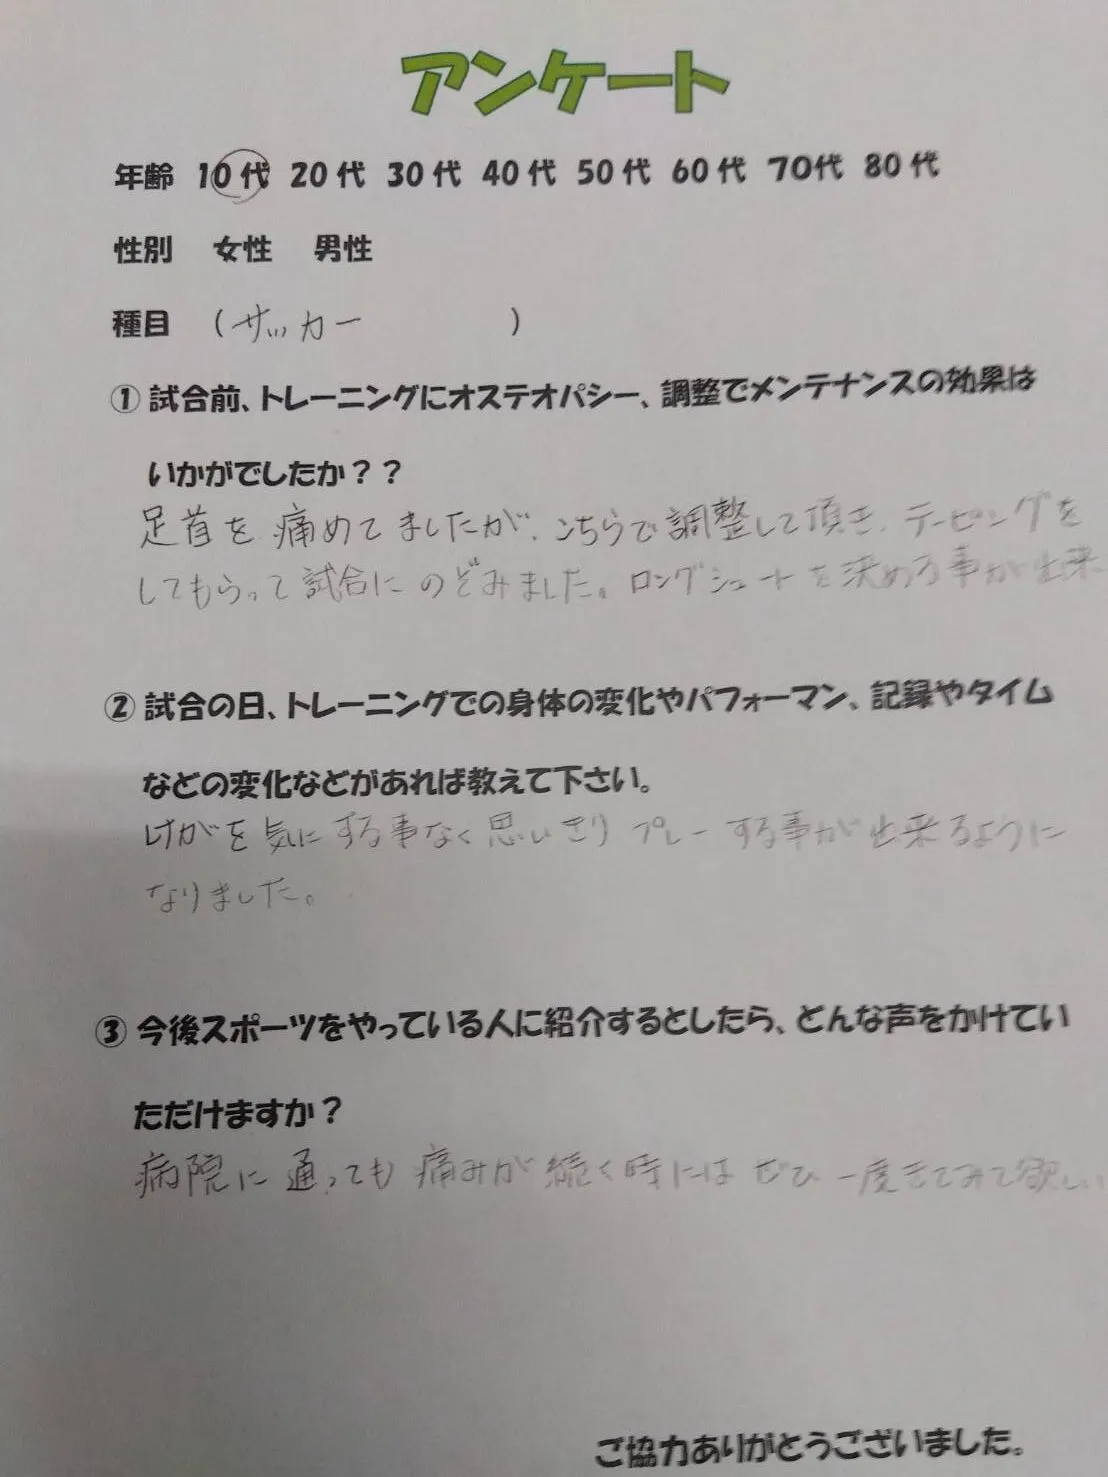 アンケート
年齢 10代 20代 30代 40代 50代 60代 70代 80代
性別 女性 男性
種目 (サッカー )
① 試合前、トレーニングにオステオパシー、調整でメンテナンスの効果は
いかがでしたか？？
足首を痛めてましたが、こちらで調整して頂き、テーピングを
してもらって試合にのぞみました。ロングシュートを決める事が出来
② 試合の日、トレーニングでの身体の変化やパフォーマン、記録やタイム
などの変化などがあれば教えて下さい。
けがを気にする事なく思いきりプレーする事が出来るように
なりました。
③ 今後スポーツをやっている人に紹介するとしたら、どんな声をかけてい
ただけますか？
病院に通っても痛みが続く時にはぜひ一度きてみて欲しい
ご協力ありがとうございました。